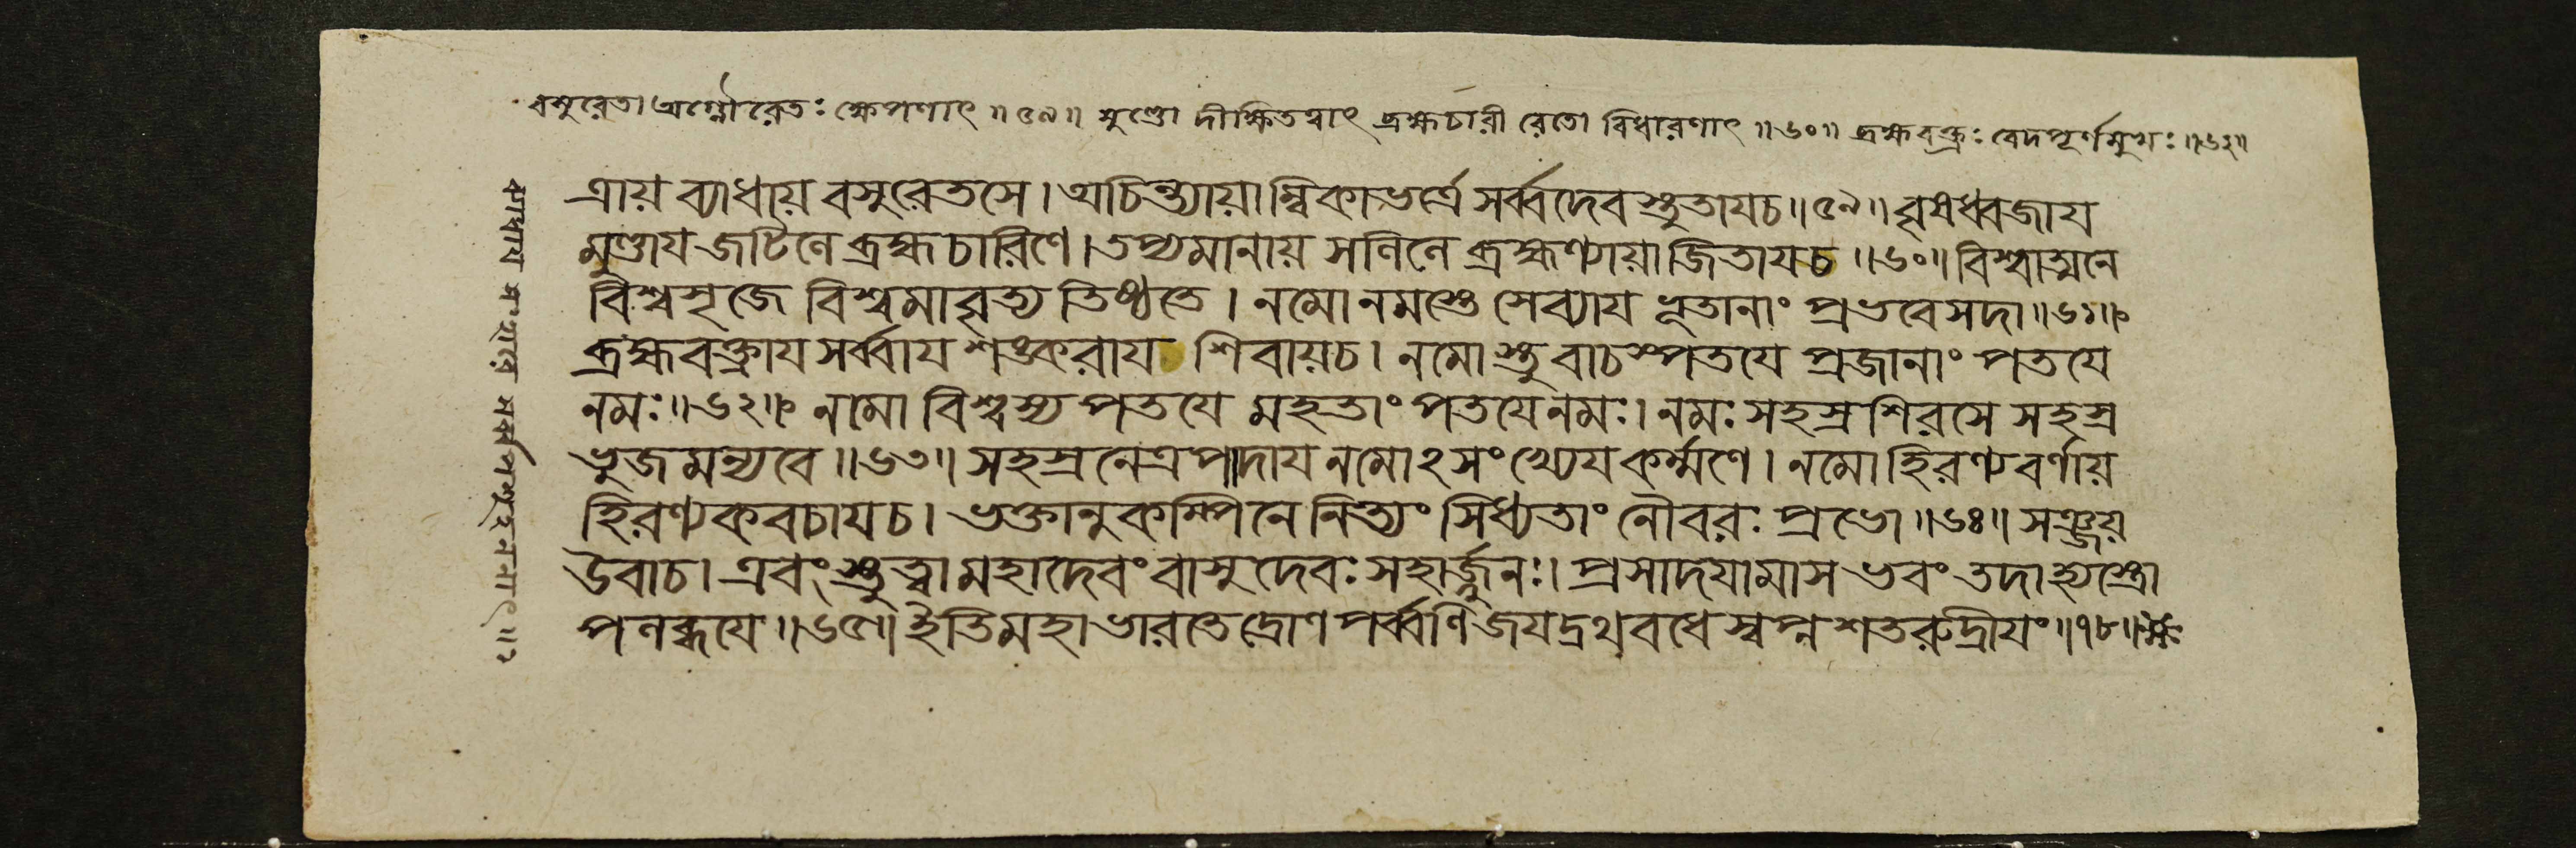 বসুরেতা অগ্নৌ রেতঃ ক্ষেপণাৎ ॥ ৫৯ ॥ মুণ্ডো দীক্ষিতত্বাৎ ব্রহ্মচারী রেতো বিধারণাৎ ॥ ৬০ ॥ ব্রহ্মবক্ত্রঃ বেদপূর্ণমুখঃ ॥ ৬২ ॥
ত্রায় ব্যাধায় বসুরেতসে । অচিন্ত্যায়াম্বিকাভর্ত্রে সর্ব্বদেবস্তুতায চ ॥ ৫৯ ॥ বৃষধ্বজায
মুণ্ডায জটিনে ব্রহ্মচারিণে । তপ্যমানায় সলিনে ব্রহ্মণ্যায়াজিতায চ ॥ ৬০ ॥ বিশ্বাত্মনে
বিশ্বসৃজে বিশ্বমাবৃত্য তিষ্ঠতে । নমো নমস্তে সেব্যায ভূতানাং প্রভবে সদা ॥ ৬১ ॥
ব্রহ্মবক্ত্রায সর্ব্বায শঙ্করায শিবায় চ । নমোস্তু বাচস্পতযে প্রজানাং পতযে
নমঃ ॥ ৬২ ॥ নমো বিশ্বস্য পতযে মহতাং পতযে নমঃ । নমঃ সহস্রশিরসে সহস্র
ভুজমন্যবে ॥ ৬৩ ॥ সহস্রনেত্রপাদায নমোঽসংখ্যেযকর্ম্মণে । নমো হিরণ্যবর্ণায়
হিরণ্যকবচায চ । ভক্তানুকম্পিনে নিত্যং সিধ্যতাং নৌ বরঃ প্রভো ॥ ৬৪ ॥ সঞ্জয়
উবাচ । এবং স্তুত্বা মহাদেবং বাসুদেবঃ সহার্জ্জুনঃ । প্রসাদযামাস ভবং তদাহ্যস্ত্রো
পলব্ধযে ॥ ৬৫ ॥ ইতি মহাভারতে দ্রোণপর্ব্বণি জযদ্রথবধে স্বপ্ন শতরুদ্রীযং ॥ ১৮ ॥